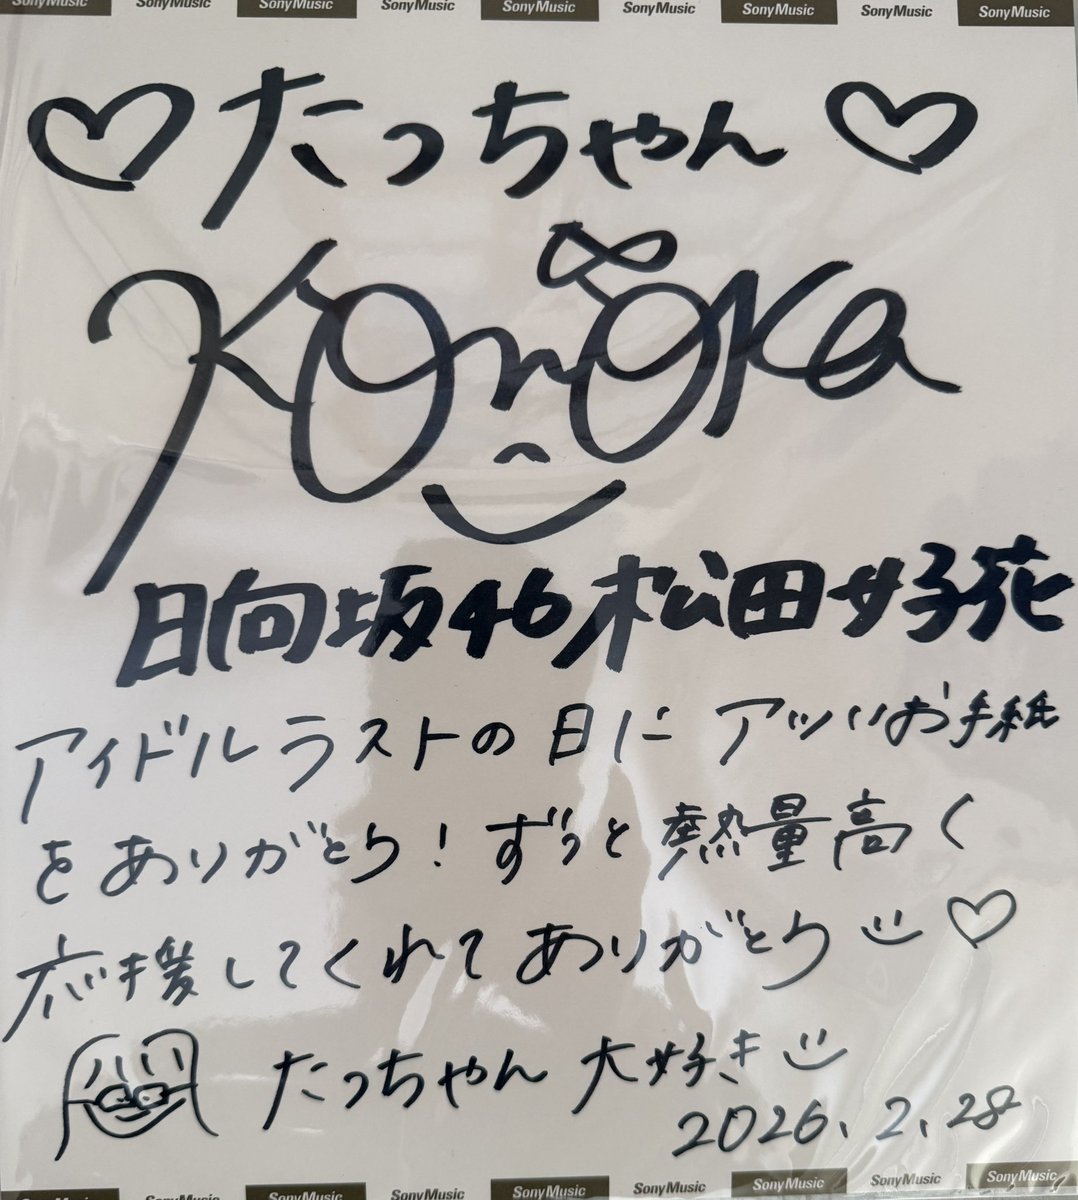 SonyMusic SonyMusic SonyMusic SonyMusic SonyMusic SonyMusic SonyMusic SonyMusic SonyMusic
♡たっちゃん♡
Konoka
日向坂46 松田好花
アイドルラストの日にアツいお手紙
をありがとう!ずっと熱量高く
応援してくれてありがとう♡
たっちゃん 大好き
2026.2.28
SonyMusic SonyMusic SonyMusic SonyMusic SonyMusic SonyMusic SonyMusic SonyMusic